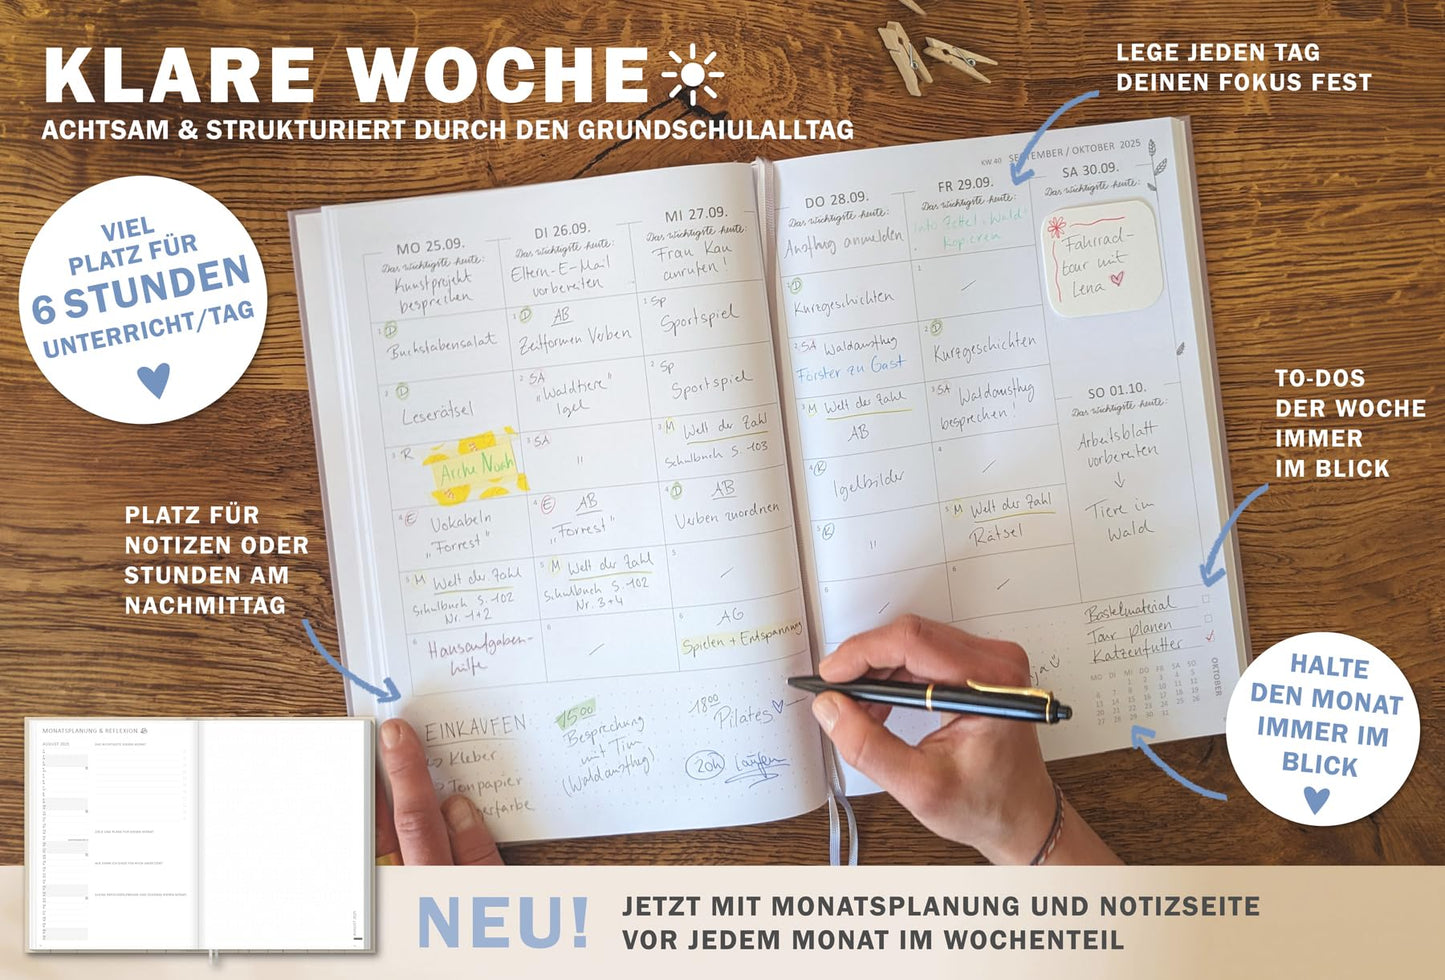 KLARE WOCHE
ACHTSAM & STRUKTURIERT DURCH DEN GRUNDSCHULALLTAG
LEGE JEDEN TAG
DEINEN FOKUS FEST
VIEL
PLATZ FÜR
6 STUNDEN
UNTERRICHT/TAG
PLATZ FÜR
NOTIZEN ODER
STUNDEN AM
NACHMITTAG
MO 25.09.
Das wichtigste heute:
Kunstprojekt
besprechen
1 D
Buchstabensalat
2 D
Leserätsel
3 R
Arche Noah
4 E
Vokabeln
„Forrest"
5 M Welt der Zahl
Schulbuch S. 102
Nr. 1+2
6
Hausaufgaben-
hilfe
DI 26.09.
Das wichtigste heute:
Eltern-E-Mail
vorbereiten
1 D AB
Zeitformen Verben
2 SA
„Waldtiere"
Igel
3 SA
"
4 E AB
„Forrest"
5 M Welt der Zahl
Schulbuch S. 102
Nr. 3+4
6
MI 27.09.
Das wichtigste heute:
Frau Kau
anrufen!
1 Sp
Sportspiel
2 Sp
Sportspiel
3 M Welt der Zahl
Schulbuch S. 103
4 D AB
Verben zuordnen
5
6 AG
Spielen + Entspannung
EINKAUFEN
Kleber
Tonpapier
15:00
Besprechung
mit Tim
(Waldausflug)
18:00
Pilates
20h laufen
KW 40 SEPTEMBER / OKTOBER 2025
DO 28.09.
Das wichtigste heute:
Ausflug anmelden
1 D
Kurzgeschichten
2 SA Waldausflug
Förster zu Gast
3 M Welt der Zahl
AB
4 K
Igelbilder
5 K
"
6
FR 29.09.
Das wichtigste heute:
Info Zettel „Wald"
kopieren
1
2 D
Kurzgeschichten
3 SA Waldausflug
besprechen!
4
5 M Welt der Zahl
Rätsel
6
SA 30.09.
Das wichtigste heute:
Fahrrad-
tour mit
Lena
SO 01.10.
Das wichtigste heute:
Arbeitsblatt
vorbereiten
Tiere im
Wald
Bastelmaterial
Tour planen
Katzenfutter
MO DI MI DO FR SA SO
OKTOBER
TO-DOS
DER WOCHE
IMMER
IM BLICK
HALTE
DEN MONAT
IMMER IM
BLICK
MONATSPLANUNG & REFLEXION
AUGUST 2025
NEU!
JETZT MIT MONATSPLANUNG UND NOTIZSEITE
VOR JEDEM MONAT IM WOCHENTEIL